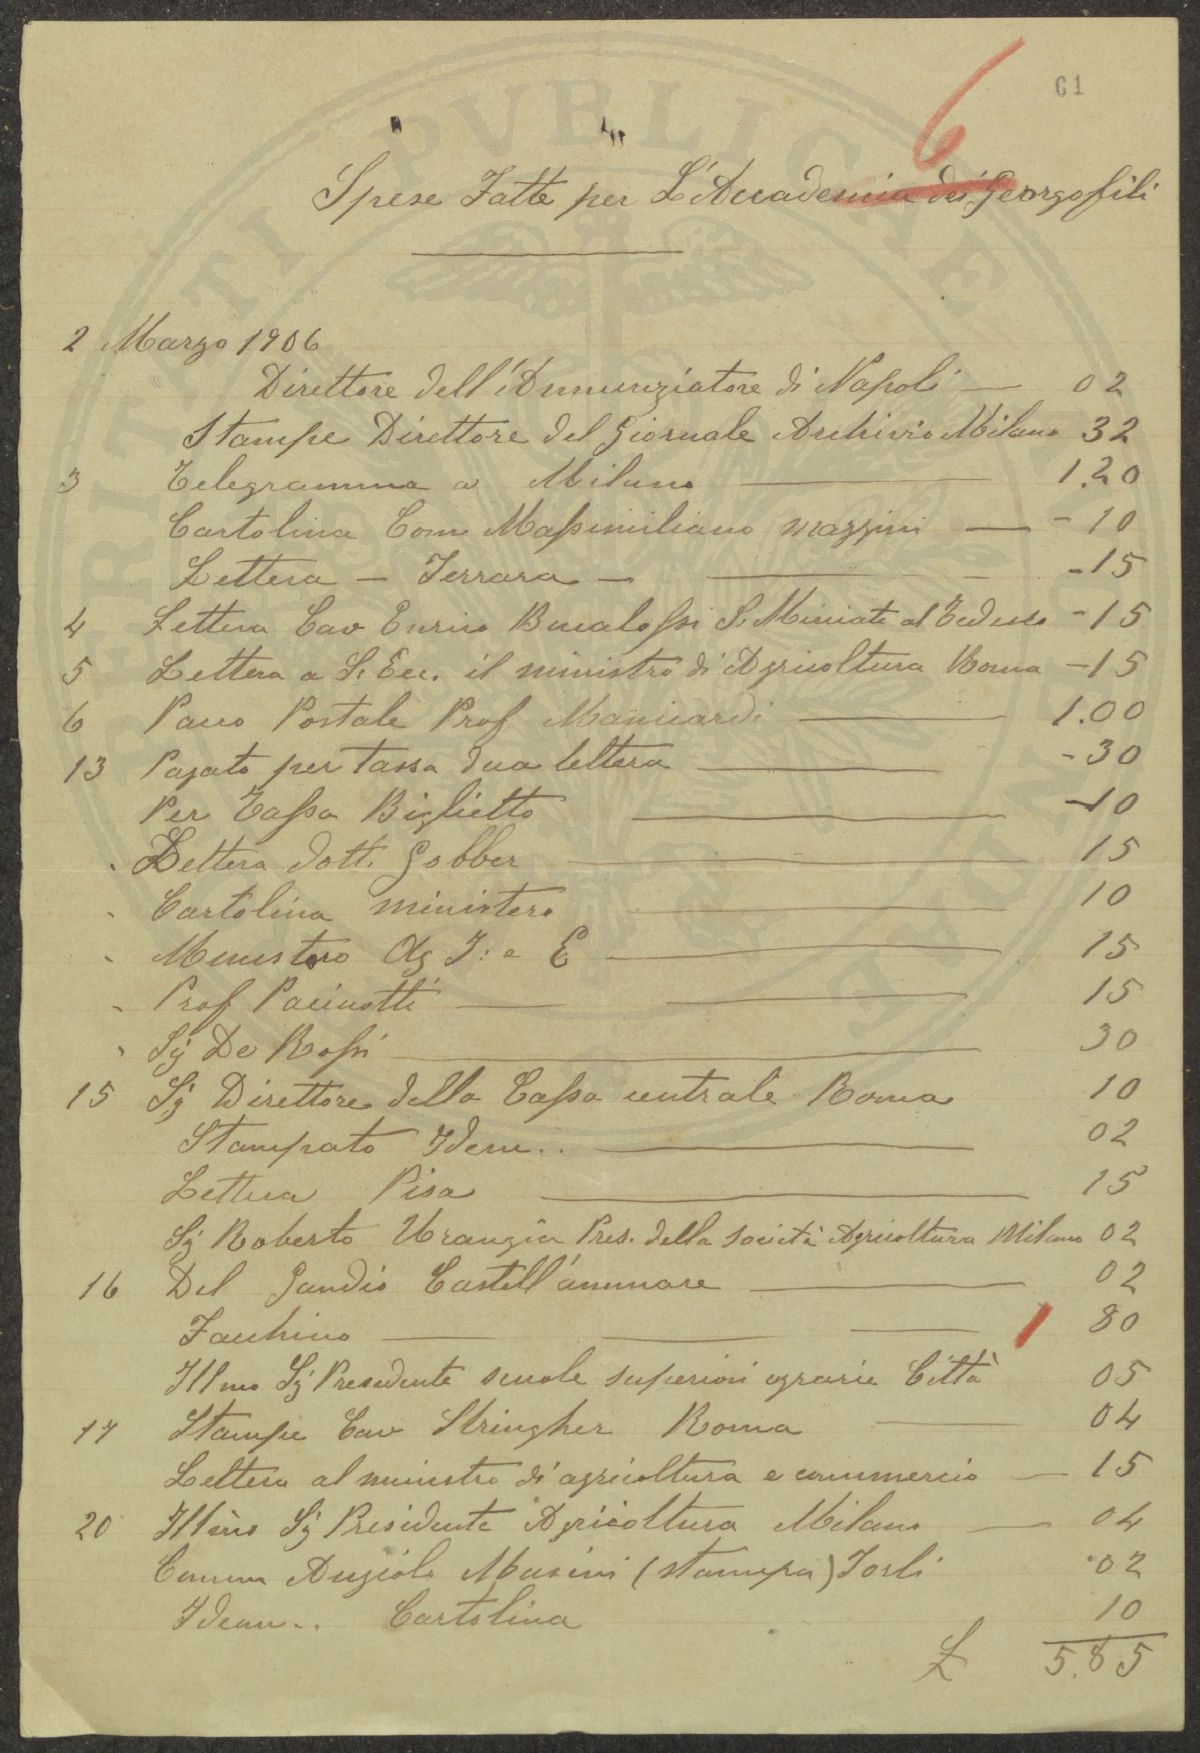 6
C1
Spese Fatte per L'Accademia dei Georgofili
2 Marzo 1906
Direttore dell'Annunziatore di Napoli — 02
Stampe Direttore del Giornale Archivio Milano 32
3 Telegramma a Milano — 1.20
Cartolina Com Massimiliano mazzini — - 10
Lettera — Ferrara — - 15
4 Lettera Cav Enrico Bucalossi S. Miniato al Tedesco - 15
5 Lettera a S. Ecc. il ministro di Agricoltura Roma - 15
6 Pacco Postale Prof — 1.00
13 Pagato per tassa dua lettera — - 30
Per Tassa Biglietto — - 10
Lettera dott. Gobber — 15
Cartolina ministero — 10
Ministero Ag I: e C — 15
Prof Pacinotti — 15
Sg De Rossi — 30
15 Sg Direttore della Cassa centrale Roma 10
Stampato Idem.. — 02
Lettera Pisa — 15
Sg Roberto Pres. della Società Agricoltura Milano 02
16 Del Gaudio Castell'ammare — 02
Facchino — 80
Illmo Sg Presidente scuole superiori agrarie Città 05
17 Stampe Cav Stringher Roma — 04
Lettera al ministro di agricoltura e commercio — 15
20 Illmo Sg Presidente Agricoltura Milano — 04
Comm Angiolo Masini (stampa) Forli 02
Idem.. Cartolina 10
£ 5.85
PRIVATI PVBLICAE